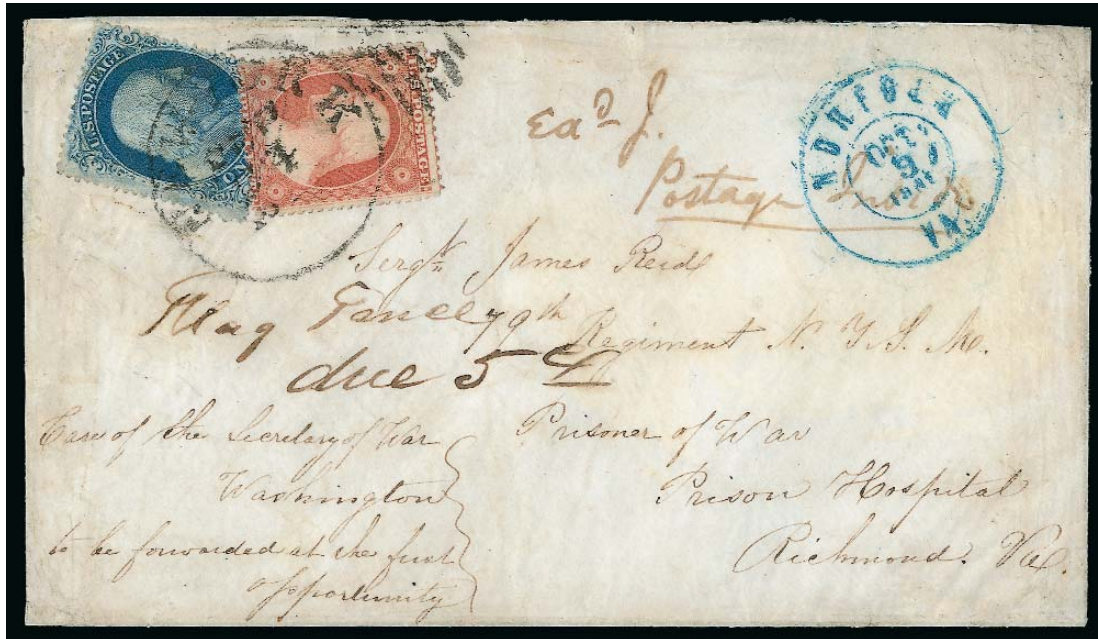 U.S. POSTAGE
ONE
POSTAGE
NORFOLK
OCT
VA
Exd J.
Postage
Sergt James Reid
79th Regiment N. Y. S. M.
Flag
due 5 cts
Prisoner of War
Prison Hospital
Richmond. Va.
Care of the Secretary of War
Washington
to be forwarded at the first
opportunity